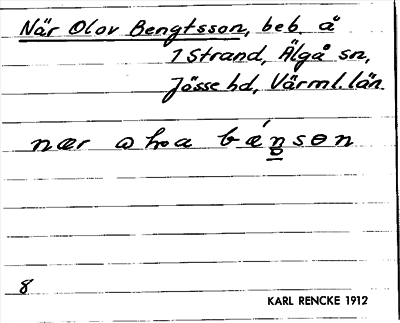 När Olov Bengtsson, beb. å
1 Strand, Älgå sn,
Jösse hd, Värml. län.
8
KARL RENCKE 1912